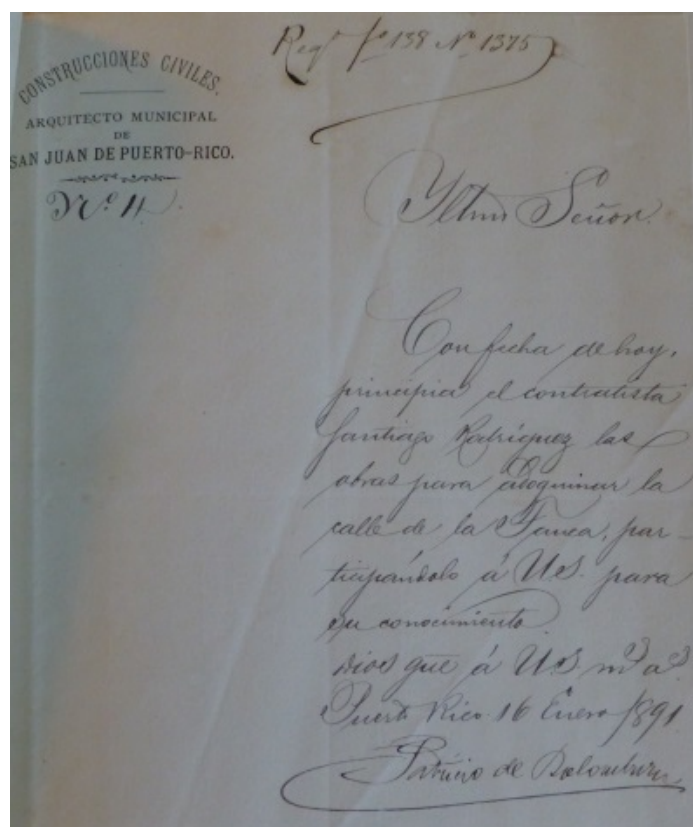 Regº fº 138 Nº 1375
CONSTRUCCIONES CIVILES.
ARQUITECTO MUNICIPAL
DE
SAN JUAN DE PUERTO-RICO.
Nº 11.
Yltmo Señor.
Con fecha de hoy,
principia el contratista
Santiago Rodríguez las
obras para adoquinar la
calle de la Tanca, par-
ticipándolo á U.S. para
su conocimiento.
Dios gue á U.S. ms as.
Puerto Rico 16 Enero /891
Patricio de